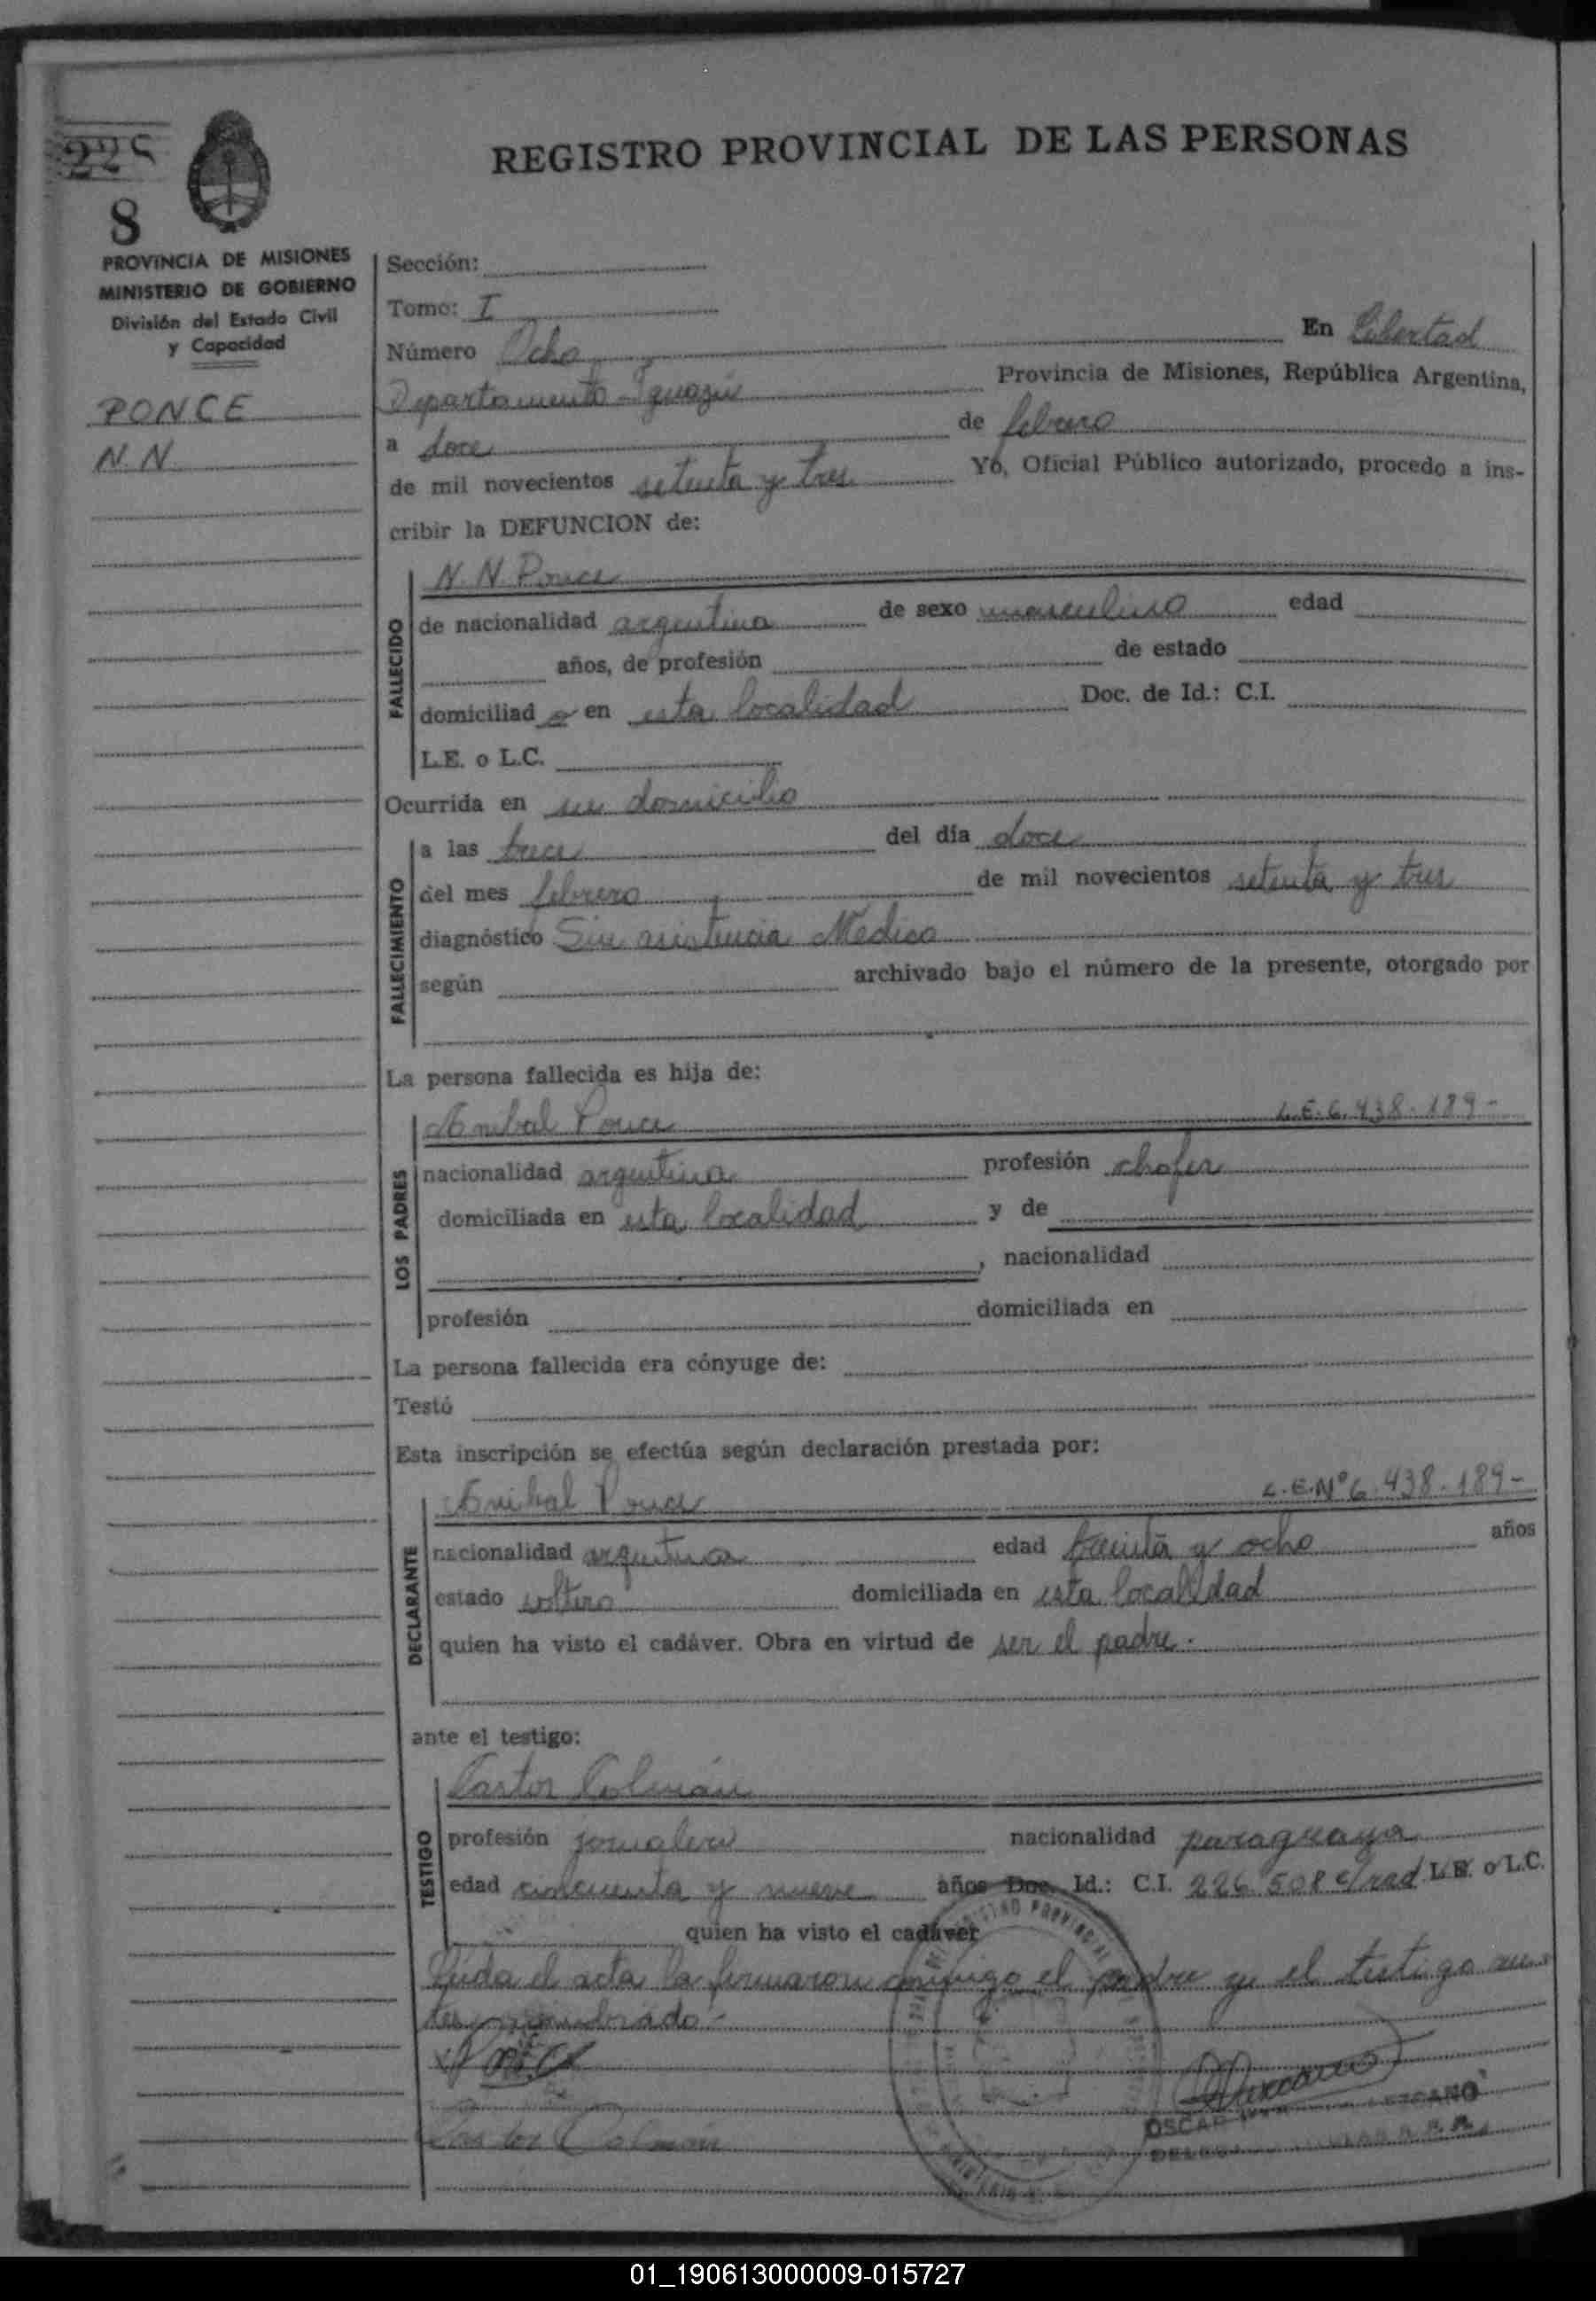 REGISTRO PROVINCIAL DE LAS PERSONAS
225
8
PROVINCIA DE MISIONES
MINISTERIO DE GOBIERNO
División del Estado Civil
y Capacidad
PONCE
N. N.
Sección:
Tomo: I
Número Ocho En Libertad
Departamento Iguazú Provincia de Misiones, República Argentina,
a doce de febrero
de mil novecientos setenta y tres Yo, Oficial Público autorizado, procedo a ins-
cribir la DEFUNCION de:
FALLECIDO
N. N. Ponce
de nacionalidad argentina de sexo masculino edad
años, de profesión de estado
domiciliad o en esta localidad Doc. de Id.: C.I.
L.E. o L.C.
Ocurrida en su domicilio
FALLECIMIENTO
a las trece del día doce
del mes febrero de mil novecientos setenta y tres
diagnóstico Sin asistencia Médica
según archivado bajo el número de la presente, otorgado por
La persona fallecida es hija de:
LOS PADRES
Anibal Ponce L.E. 6.438.189-
nacionalidad argentina profesión chofer
domiciliada en esta localidad y de
, nacionalidad
profesión domiciliada en
La persona fallecida era cónyuge de:
Testó
Esta inscripción se efectúa según declaración prestada por:
DECLARANTE
Anibal Ponce L.E.Nº 6.438.189-
nacionalidad argentina edad treinta y ocho años
estado soltero domiciliada en esta localidad
quien ha visto el cadáver. Obra en virtud de ser el padre.
ante el testigo:
TESTIGO
Castor Colmán
profesión jornalero nacionalidad paraguaya
edad cincuenta y nueve años Doc. Id.: C.I. 226.508 c/rad L.E. o L.C.
quien ha visto el cadáver
Leida el acta la firmaron conmigo el padre y el testigo an-
tes nombrado.-
Ponce
Castor Colmán
OSCAR LEZCANO